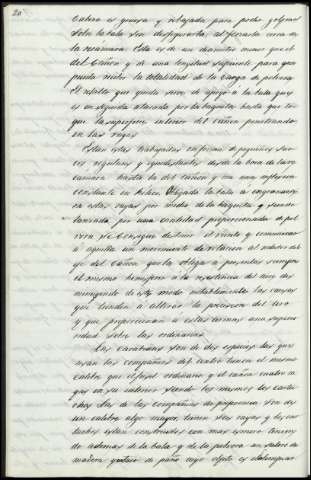 20
cabeza es gruesa y rebajada para poder golpear
sobre la bala sin desfigurarla, al forzarla cerca de
la recamara. Esta es de un diametro menor que el
del cañon y de una longitud suficiente para que
pueda recibir la totalidad de la carga de polvora.
El resalte que queda sirve de apoyo a la bala que
es en seguida atacada por la baqueta hasta que to-
que la superficie interior del cañon penetrando
en las rayas.
Estan estas trabajadas en forma de pequeños sur-
cos regulares y equidistantes desde la boca de la re-
camara hasta la del cañon y con una inflexion
constante en helice. Obligada la bala a engranarse
en estas rayas por medio de la baqueta y siendo
lanzada por una cantidad proporcionada de pol-
vora se consigue destruir el viento y comunicar
a aquella un movimiento de rotacion al rededor del
eje del cañon que la obliga a presentar siempre
el mismo hemisferio a la resistencia del aire dis-
minuyendo de este modo notablemente las causas
que tienden a alterar la precision del tiro
y que proporcionan a estas armas una superio-
ridad sobre las ordinarias.
Las carabinas son de dos especies las que
usan las compañias del centro tienen el mismo
calibre que el fusil ordinario y el cañon cuatro ra-
yas en su interior siendo los mismos los cartu-
chos. Las de las compañias de preferencia son de
un calibre algo mayor, tienen seis rayas y los car-
tuchos estan construidos con mas esmero tenien-
do ademas de la bala y de la polvora un salero de
madera guateado de paño cuyo objeto es el de limpiar